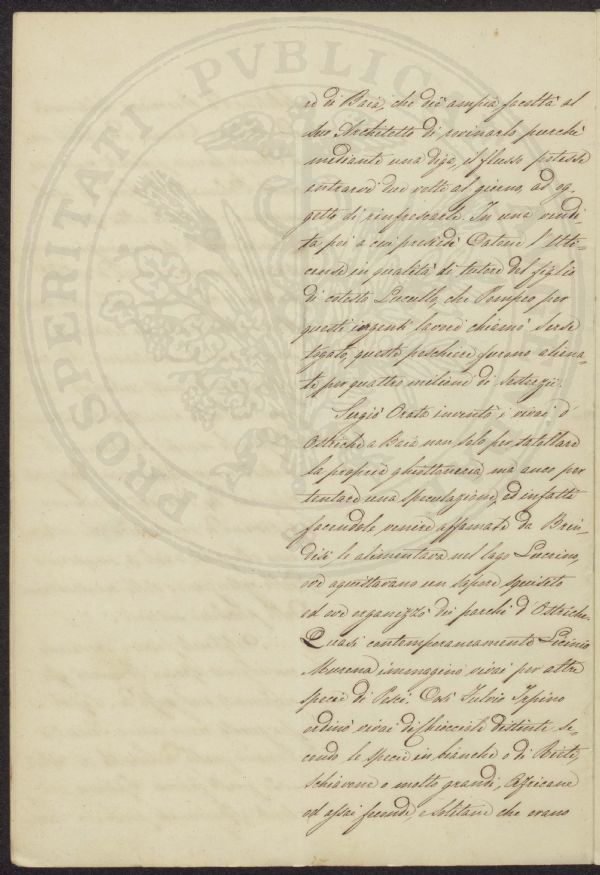 PROSPERITATI PVBLICAE
re di Baia, che diè ampia facoltà al
suo Architetto di rovinarlo purchè
mediante una diga, il flusso potesse
entrarvi due volte al giorno, ad og-
getto di rinfrescarle. In una vendi-
ta poi a cui presiedè Catone l'Uti-
cense in qualità di tutore del figlio
di cotesto Lucullo, che Pompeo per
questi ingenti lavori chiamò Serse
togato, queste peschiere furono aliena-
te per quattro milioni di sesterzi.
Sergio Orata inventò i vivai d'
Ostriche a Baia non solo per satollare
la propria ghiottoneria, ma anco per
tentare una speculazione, ed infatti
facendole venire affamate da Brin-
disi le alimentava nel lago Lucrino,
ove acquistavano un sapore squisito
ed ove organizzò dei parchi d'Ostriche.
Quasi contemporaneamente Licinio
Murena immaginò vivai per altre
specie di Pesci. Così Fulvio Irpino
ordinò vivai di Chiocciole distinte se-
condo le specie in bianche o di Rieti,
schiavone o molto grandi, Affricane
ed assai feconde e Solitane che erano